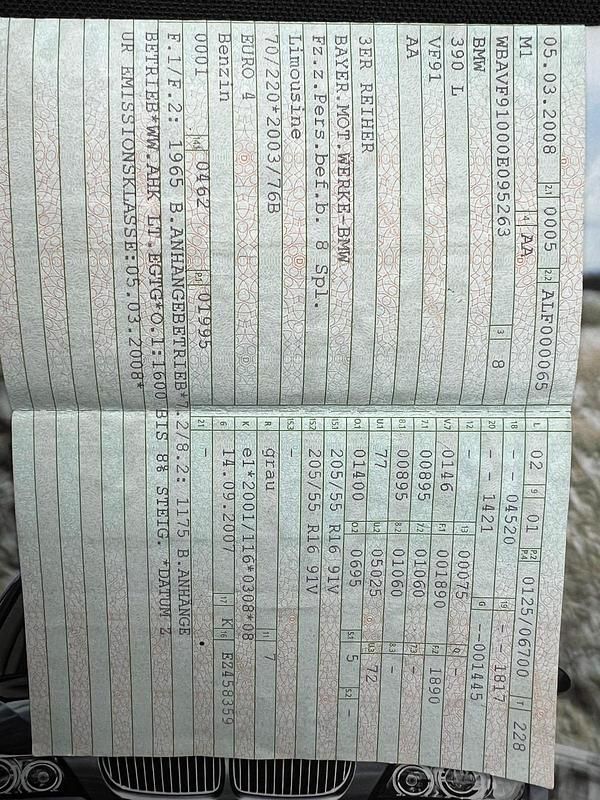 05.03.2008 2.1 0005 2.2 ALF000065
M1 4 AA
WBAVF91000E095263 3 8
BMW
390 L
VF91
AA
3ER REIHER
BAYER.MOT.WERKE-BMW
Fz.z.Pers.bef.b. 8 Spl.
Limousine
70/220*2003/76B
EURO 4
Benzin
0001 14.1 0462 P.1 01995
L 02 9 01 P.2 P.4 0125/06700 T 228
18 - - 04520 19 - - 1817
20 - - 1421 G --001445
12 - 13 00075 Q -
V.7 0146 F.1 001890 F.2 1890
7.1 00895 7.2 01060 7.3 -
8.1 00895 8.2 01060 8.3 -
U.1 77 U.2 05025 U.3 72
O.1 01400 O.2 0695 S.1 5 S.2 -
15.1 205/55 R16 91V
15.2 205/55 R16 91V
15.3 -
R grau 11 7
K e1*2001/116*0308*08
6 14.09.2007 17 K 16 EZ458359
21 -
F.1/F.2: 1965 B.ANHÄNGEBETRIEB*7.2/8.2: 1175 B.ANHÄNGE
BETRIEB*WW.AHK LT.EGTG*O.1:1600 BIS 8% STEIG. *DATUM Z
UR EMISSIONSKLASSE:05.03.2008*